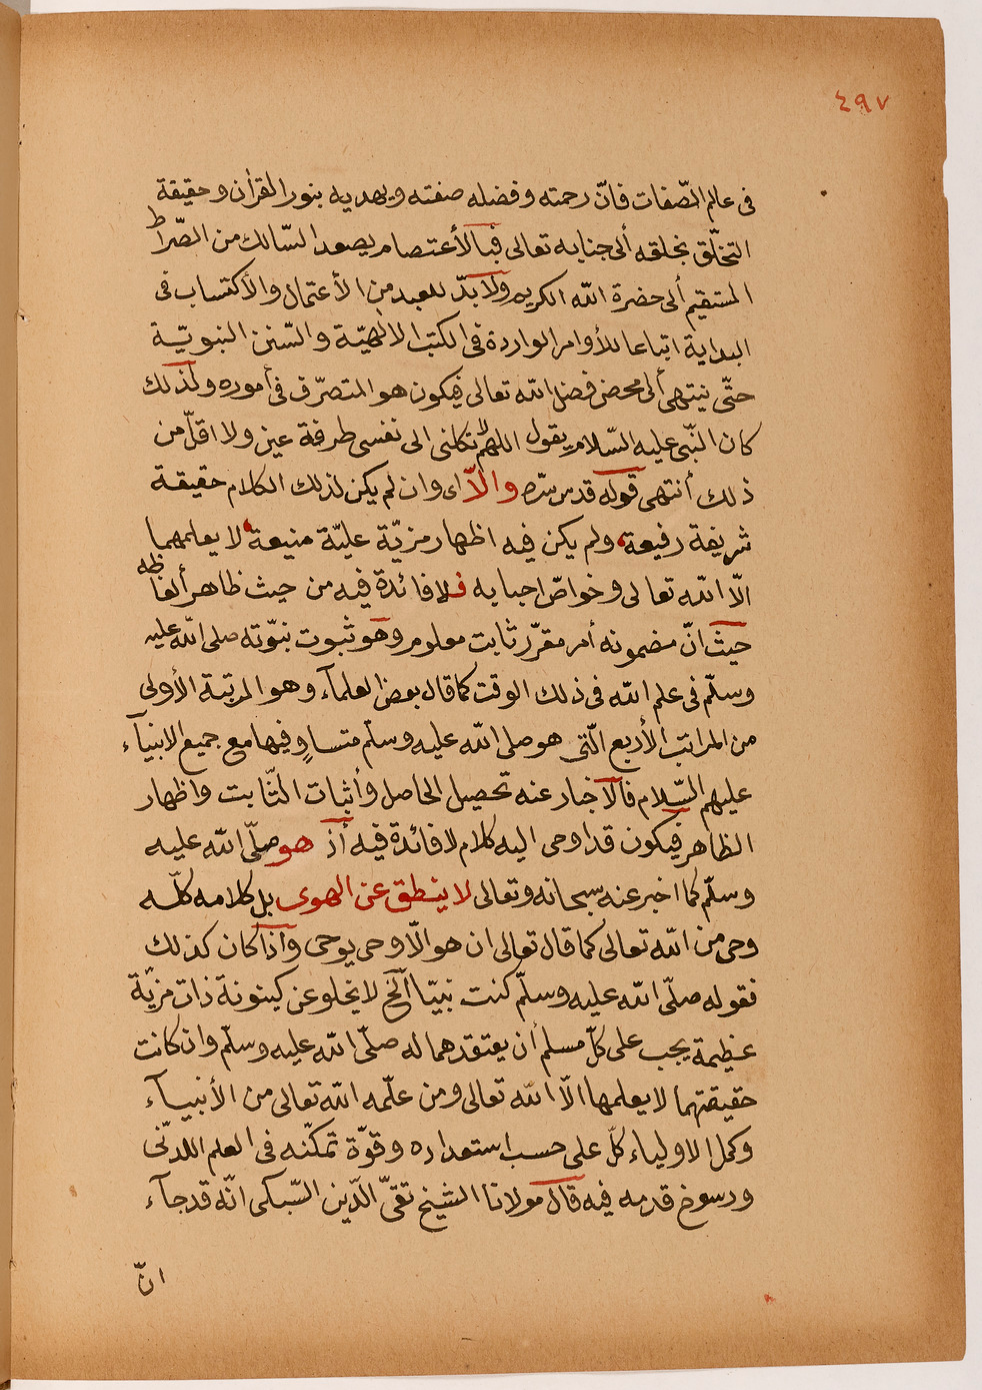 ٤٩٧
فى عالم الصّفات فانّ رحمته وفضله صفته ويهديه بنور القرأن وحقيقة
التخلّق بخلقه ألى جنابه تعالى فبالأعتصام يصعد السّالك من الصّراط
المستقيم ألى حضرة الله الكريم ولابدّ للعبد من الأعتمال والأكتساب فى
البداية اتباعا للأوامر الواردة فى الكتب الالهيّة والسّنن النبويّة
حتّى ينتهى ألى محض فضل الله تعالى فيكون هو المتصرّف فى أموره ولذلك
كان النّبى عليه السّلام يقول اللهم لا تكلنى الى نفسى طرفة عين ولا اقلّ من
ذلك أنتهى قوله قدس سرّه والاّ اى وان لم يكن لذلك الكلام حقيقة
شريفة رفيعة ولم يكن فيه اظهار مزيّة عليّة منيعة لا يعلمهما
الاّ الله تعالى وخواصّ احبابه فلا فائدة فيه من حيث ظاهر ألفاظه
حيث انّ مضمونه أمر مقرّر ثابت معلوم وهو ثبوت نبوّته صلى الله عليه
وسلّم فى علم الله فى ذلك الوقت كما قال بعض العلمآء وهو المرتبة الأولى
من المراتب الأربع الّتى هو صلى الله عليه وسلّم متساوٍ فيها مع جميع الانبيآء
عليهم السّلام فالآخبار عنه تحصيل الحاصل وأثبات الثّابت واظهار
الظاهر فيكون قد اوحى اليه كلام لا فائدة فيه أذ هو صلّى الله عليه
وسلّم كما اخبر عنه سبحانه وتعالى لا ينطق عن الهوى بل كلامه كلّه
وحى من الله تعالى كما قال تعالى ان هو الاّ وحى يوحى وأذا كان كذلك
فقوله صلّى الله عليه وسلّم كنت نبيّا آلخ لا يخلو عن كينونة ذات مزيّة
عظيمة يجب على كلّ مسلم أن يعتقدهما له صلّى الله عليه وسلّم وان كانت
حقيقتهما لا يعلمها الاّ الله تعالى ومن علّمه الله تعالى من الأنبيآء
وكمل الاولياء كلّ على حسب استعداره وقوّة تمكّنه فى العلم اللدنّى
ورسوخ قدمه فيه قال مولانا الشيخ تقىّ الدّين السّبكى انّه قد جآء
انّ